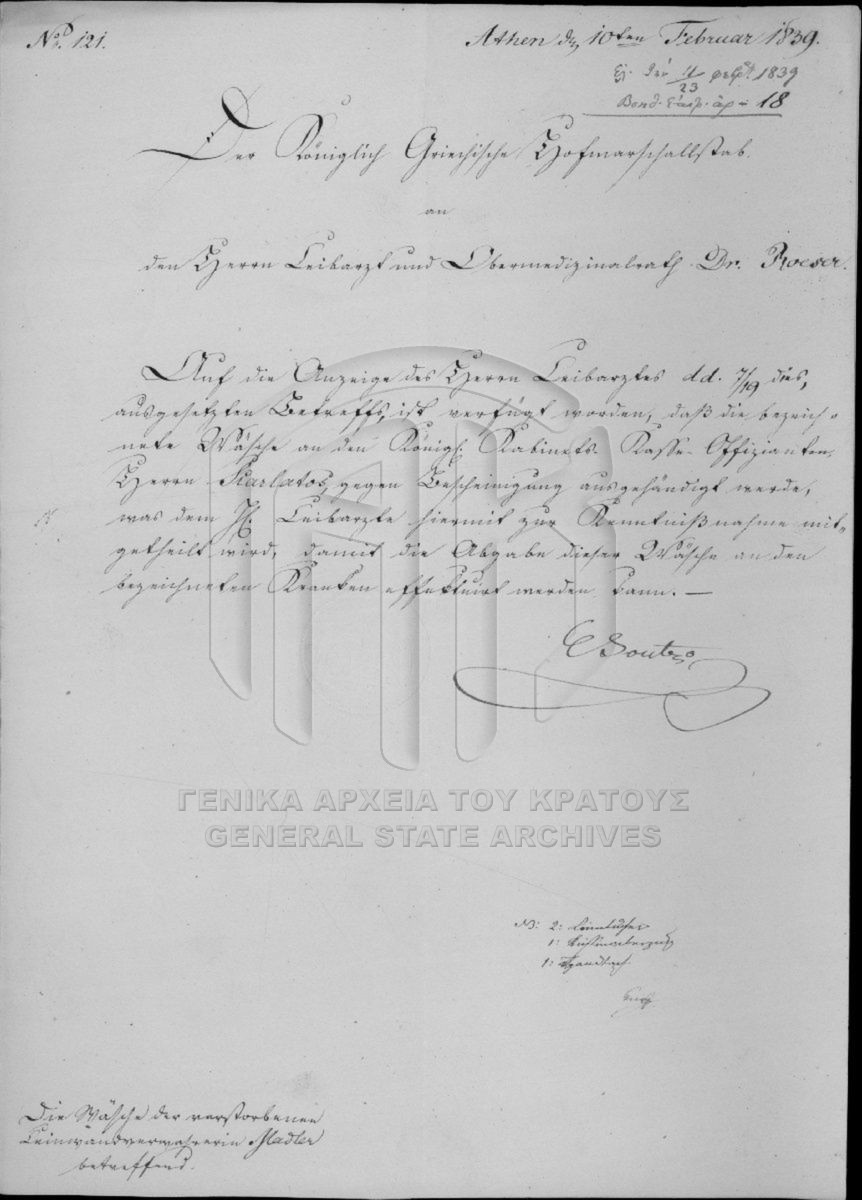 No. 121.
Athen den 10ten Februar 1839.
11/23 φεβρ 1839
18
Der Königlich Griechische Hofmarschallstab.
an
den Herrn Leibarzt und Obermedizinalrath Dr. Roeser.
Auf die Anzeige des Herrn Leibarztes dd. 7/19 dies,
ausgesetzten Betreffs, ist verfügt worden, daß die bezeich-
nete Wäsche an den Königl. Kabinets-Kasse-Offizianten,
Herrn Skarlatos, gegen Bescheinigung ausgehändigt werde,
was dem H. Leibarzte hiermit zur Kenntnißnahme mit-
getheilt wird, damit die Abgabe dieser Wäsche an den
bezeichneten Kranken effektuirt werden kann. —
C Soutzo
ΓΕΝΙΚΑ ΑΡΧΕΙΑ ΤΟΥ ΚΡΑΤΟΥΣ
GENERAL STATE ARCHIVES
NB: 2: Leintücher
1: Kissenüberzug
1: Handtuch
Die Wäsche der verstorbenen
Leinwandverwahrerin Stadler
betreffend.